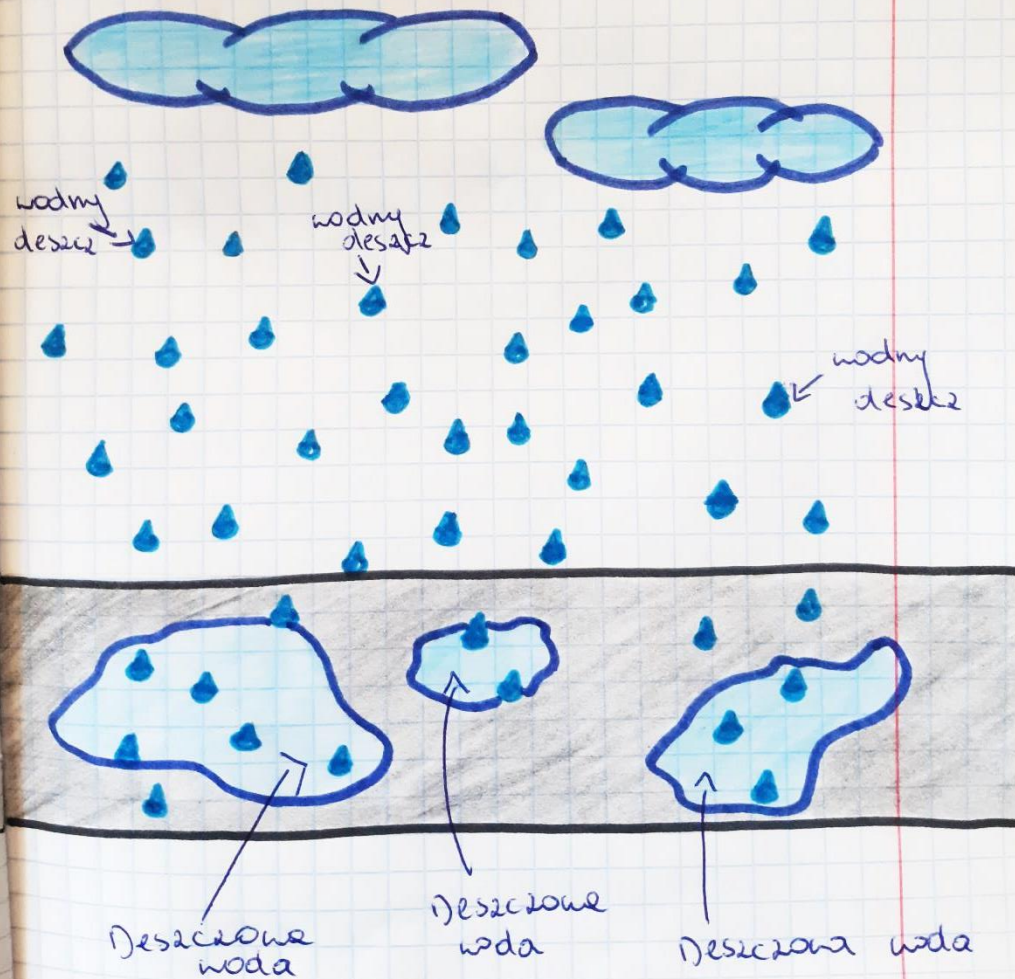 wodny
deszcz
wodny
deszcz
wodny
deszcz
Deszczowa
woda
Deszczowa
woda
Deszczowa woda